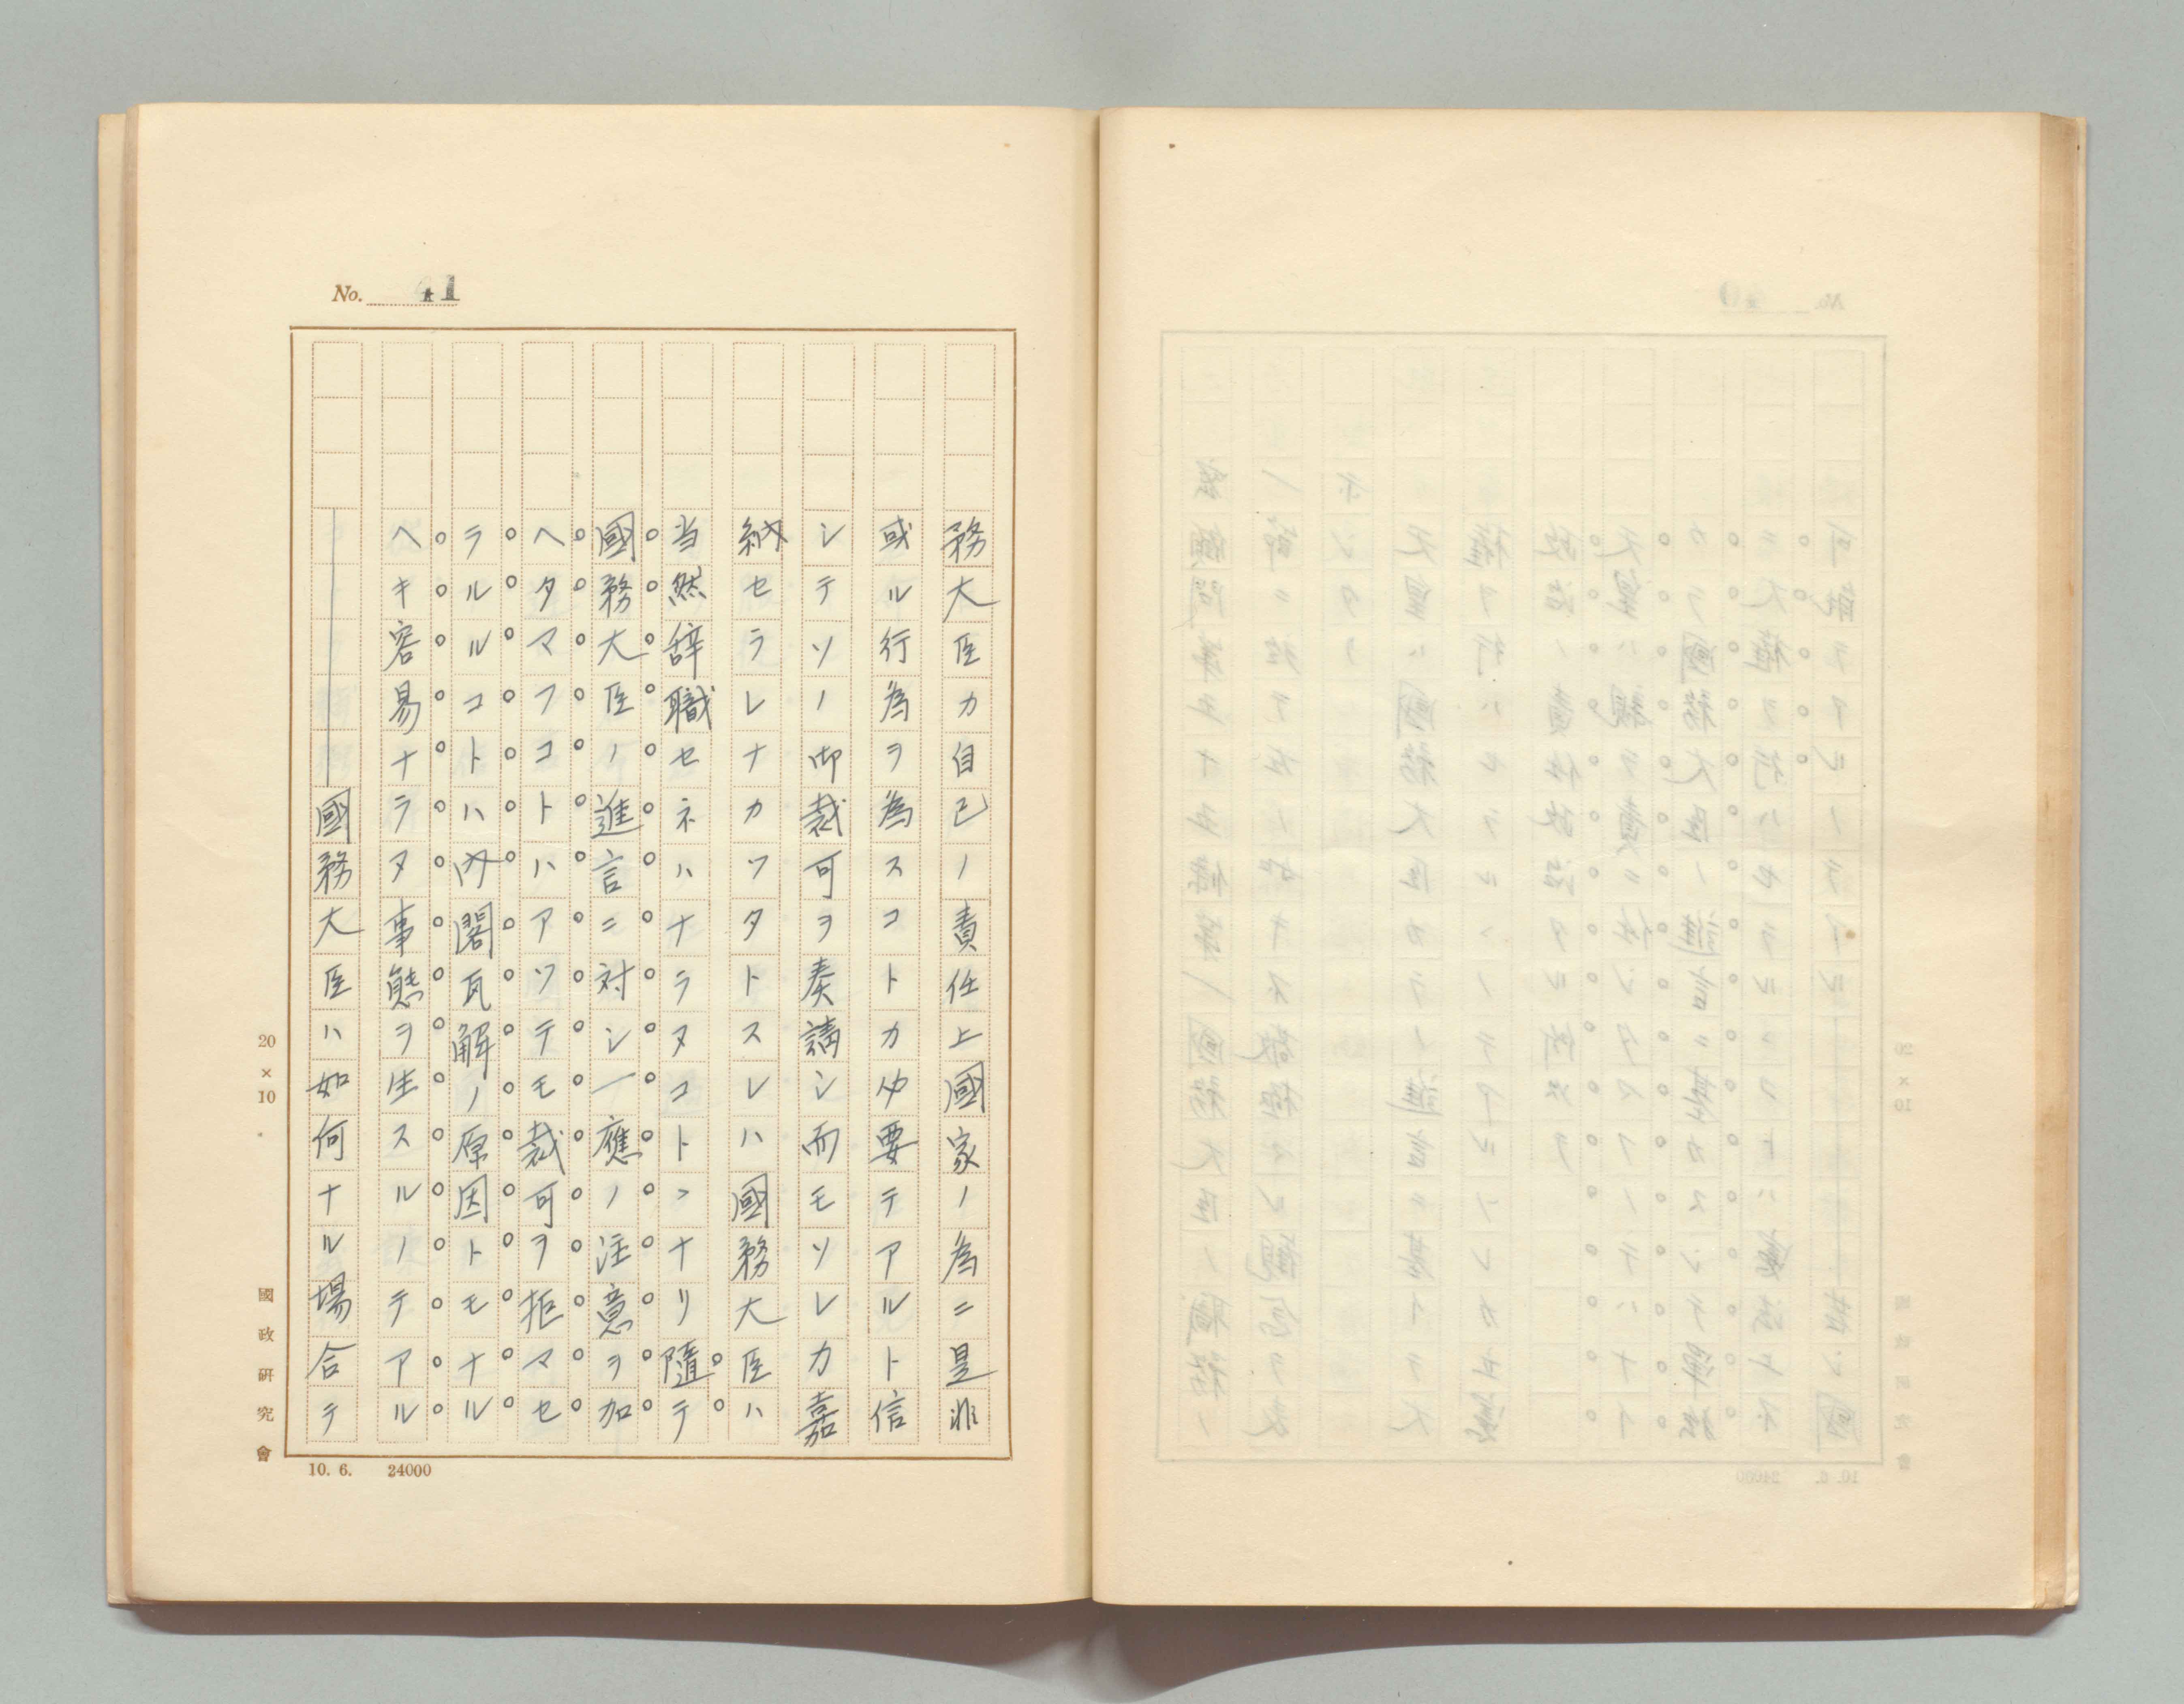 No. 41
務大臣カ自己ノ責任上國家ノ為ニ是非
或ル行為ヲ為スコトカ必要テアルト信
シテソノ御裁可ヲ奏請シ而モソレカ嘉
納セラレナカツタトスレハ國務大臣ハ
当然辞職セネハナラヌコトトナリ隨テ
國務大臣ノ進言ニ対シ一應ノ注意ヲ加
ヘタマフコトハアツテモ裁可ヲ拒マセ
ラルルコトハ内閣瓦解ノ原因トモナル
ヘキ容易ナラヌ事態ヲ生スルノテアル
――國務大臣ハ如何ナル場合テ
20×10
國政研究會
10. 6. 24000